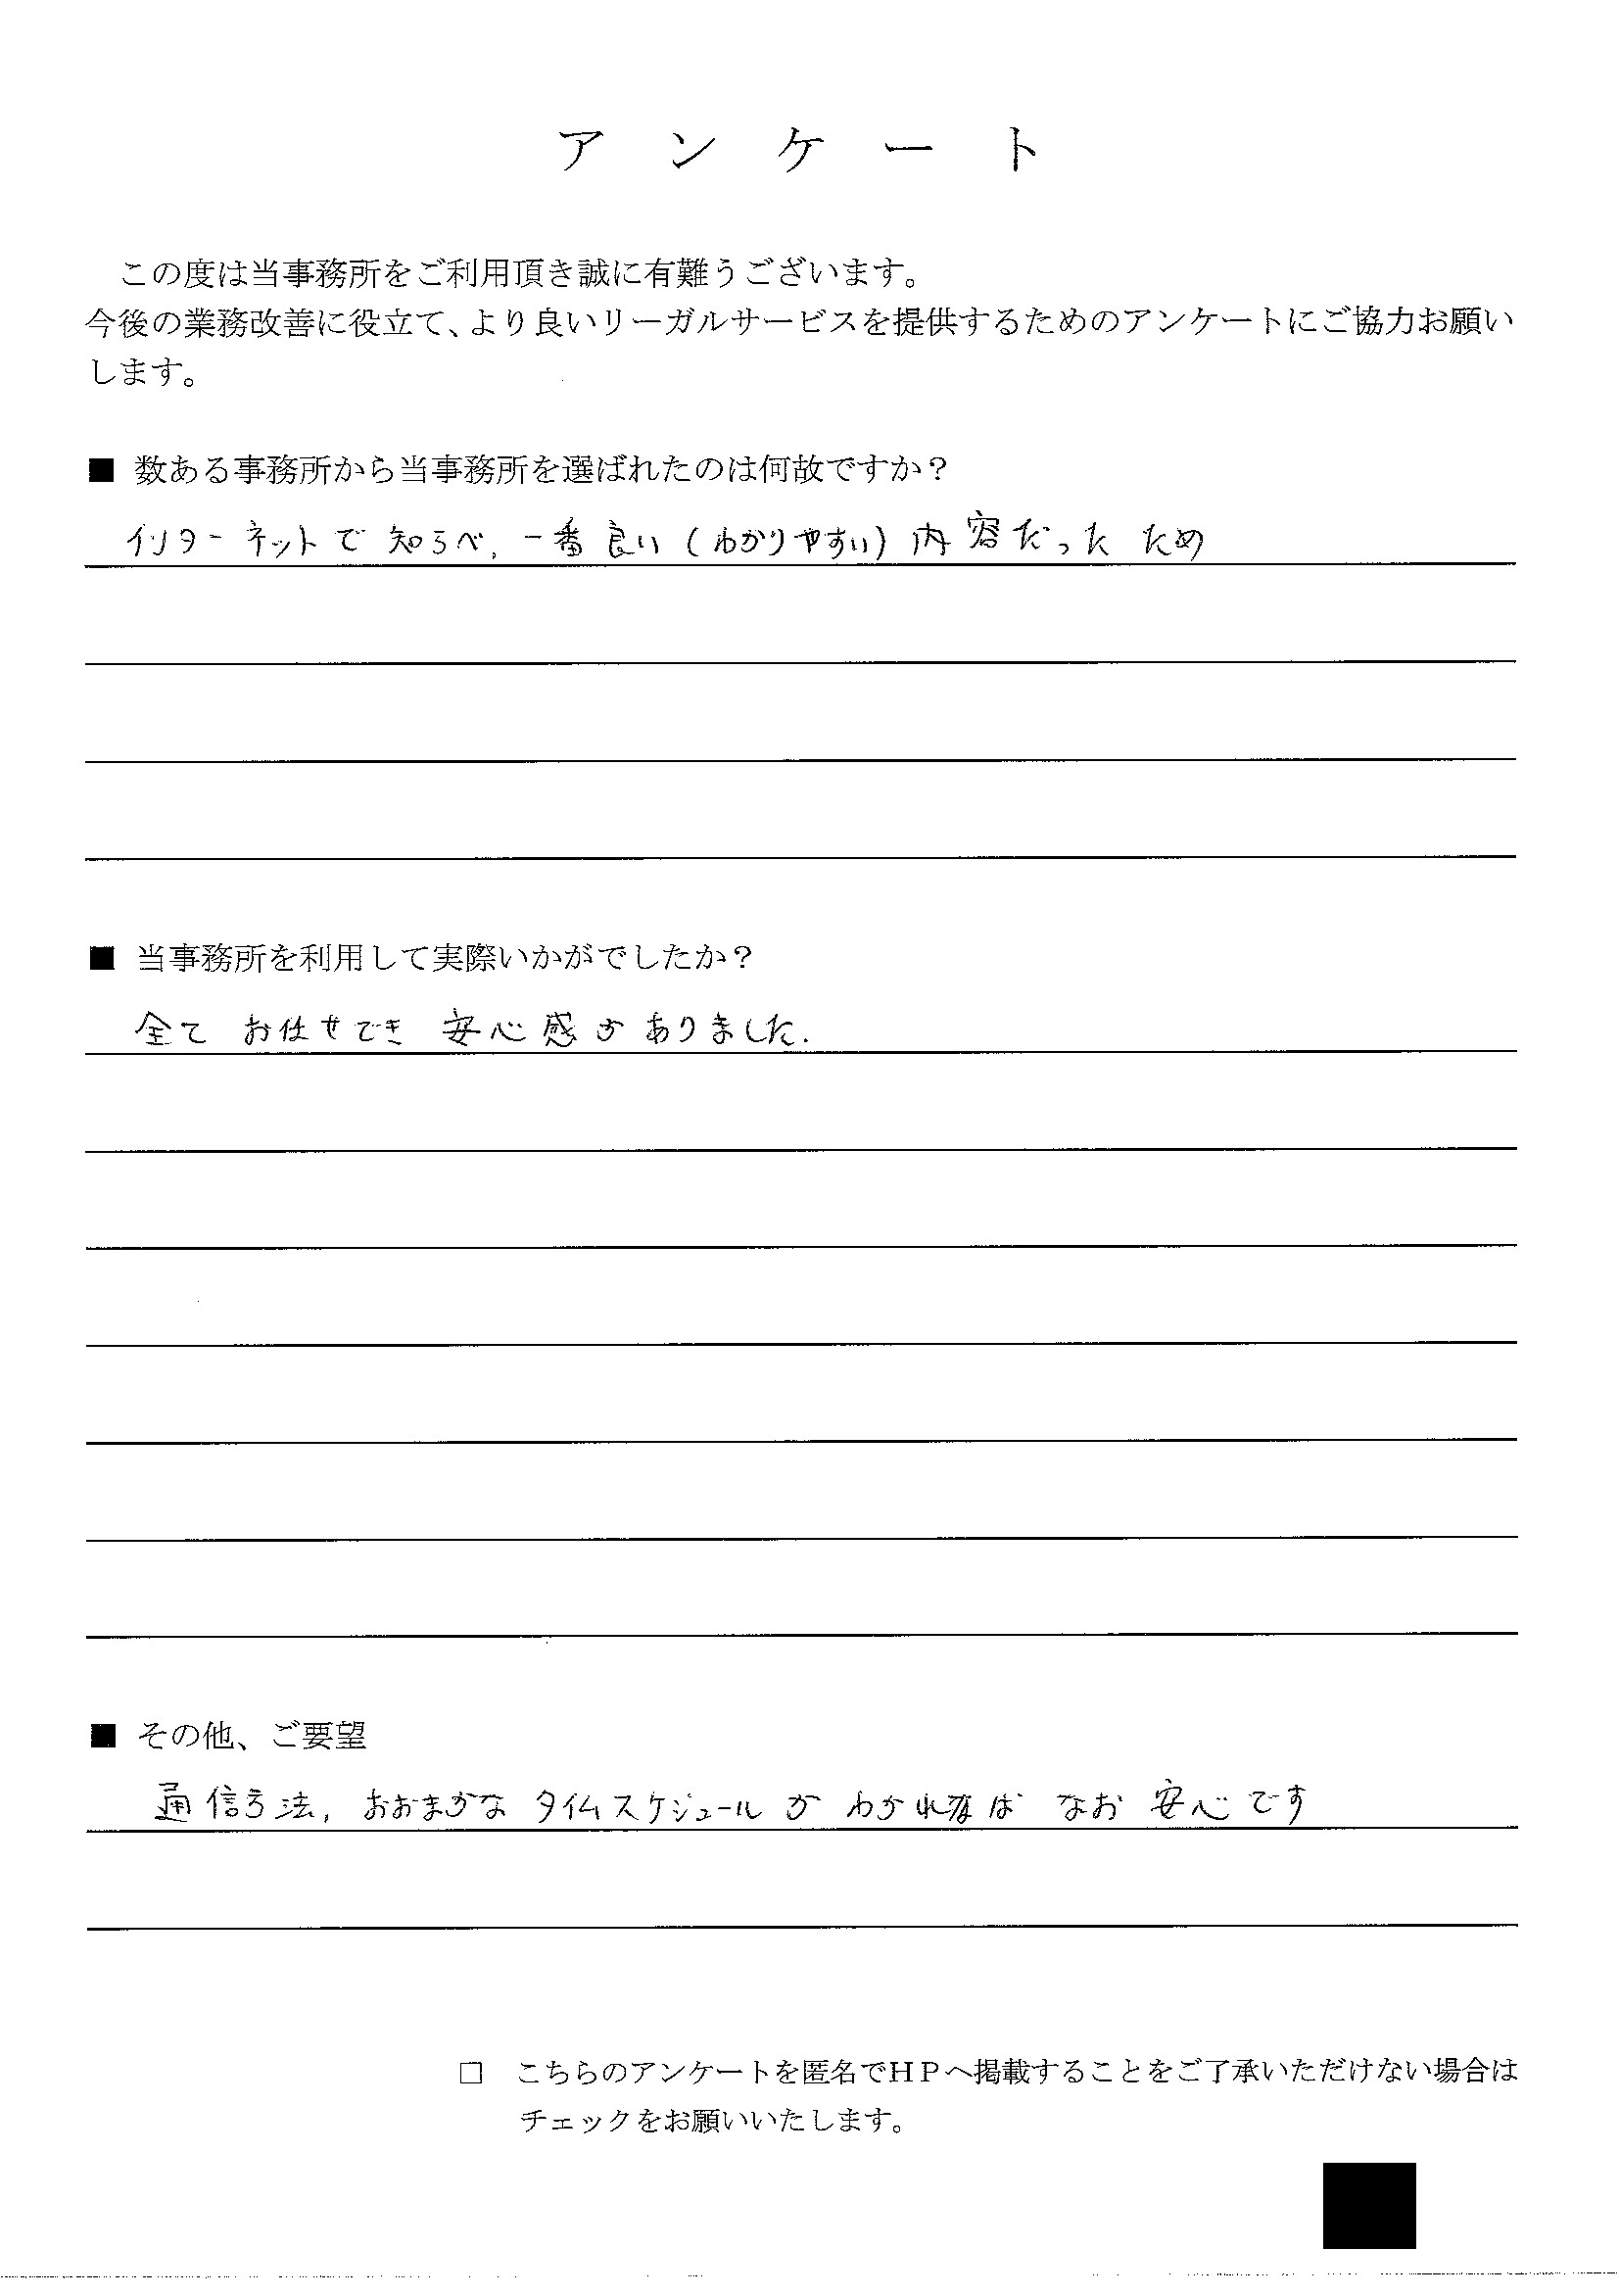 アンケート
この度は当事務所をご利用頂き誠に有難うございます。
今後の業務改善に役立て、より良いリーガルサービスを提供するためのアンケートにご協力お願い
します。
■ 数ある事務所から当事務所を選ばれたのは何故ですか？
インターネットで 知らべ, 一番 良い (わかりやすい) 内容だった ため
■ 当事務所を利用して実際いかがでしたか？
全て お任せでき 安心感が ありました.
■ その他、ご要望
通信方法, おおまかな タイムスケジュールが わかれば なお 安心です
□ こちらのアンケートを匿名でＨＰへ掲載することをご了承いただけない場合は
チェックをお願いいたします。